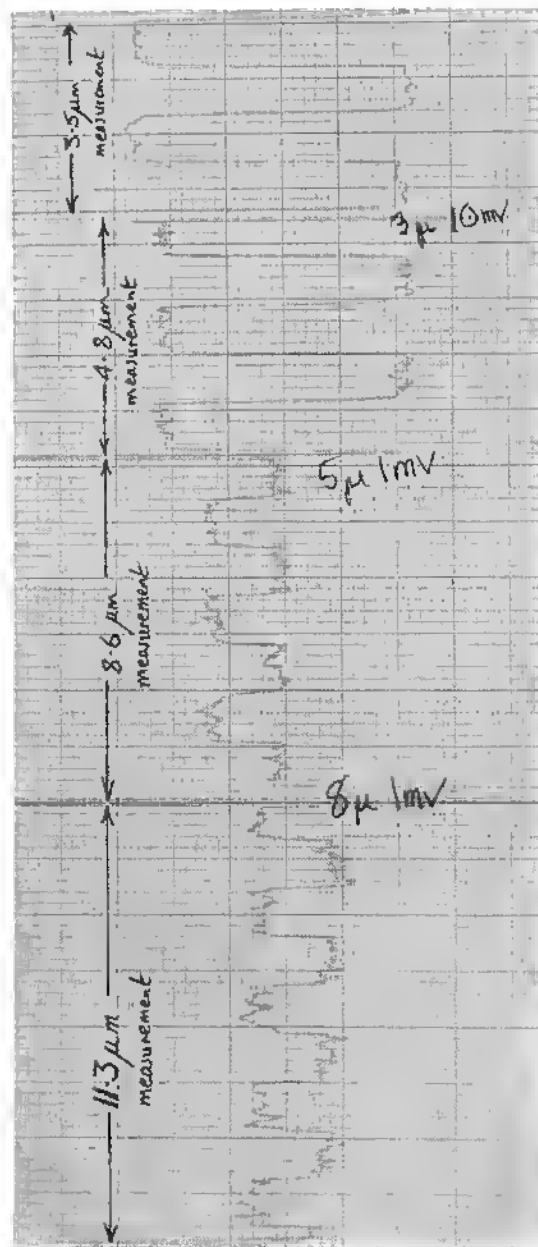 3.5 μm
measurement
3 μ 10mV
4.8 μm
measurement
5 μ 1mV
8.6 μm
measurement
8 μ 1mV
11.3 μm
measurement